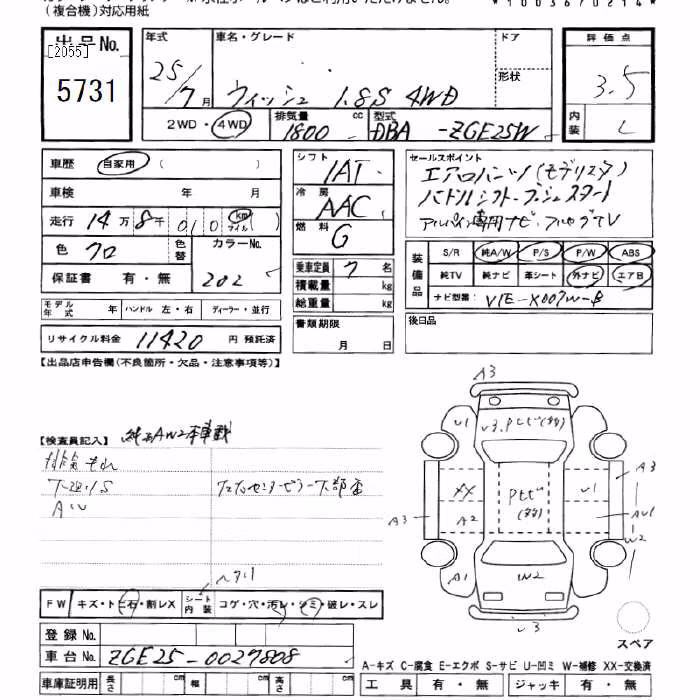 (複合機)対応用紙
*1003670214*
出品No.
[2055]
5731
年式 25/7月
車名・グレード ウィッシュ 1.8S 4WD
ドア
形状
評価点 3.5
内装 C
2WD・4WD
排気量 1800 cc
型式 DBA-ZGE25W
車歴 自家用 ( )
車検 年 月
走行 14万8千010 km マイル
色 クロ 色替 カラーNo. 202
保証書 有・無
モデル年式 年 ハンドル 左・右 ディーラー・並行
リサイクル料金 11420 円 預託済
シフト IAT
冷房 AAC
燃料 G
乗車定員 7 名
積載量 kg
総重量 kg
書類期限
月 日
セールスポイント
エアロパーツ(モデリスタ)
パドルシフト・プッシュスタート
アルパイン専用ナビ・フルセグTV
装備品
S/R 純A/W P/S P/W ABS
純TV 純ナビ 革シート 外ナビ エアB
ナビ型番 VIE-X007W-B
後日品
【出品店申告欄(不良箇所・欠品・注意事項等)】
【検査員記入】 純正AW2本車載
排気もれ
下廻りS
AW
A3
U1
U3
XX
A2
A3
U1
A3
AU1
W2
A1
W2
U3
FW キズ・トビ石・割レX
シート内装 コゲ・穴・汚レ・シミ・破レ・スレ
登録No.
車台No. ZGE25-0027808
車庫証明用 長さ cm 幅 cm 高さ cm
スペア
A-キズ C-腐食 E-エクボ S-サビ U-凹ミ W-補修 XX-交換済
工具 有・無 ジャッキ 有・無